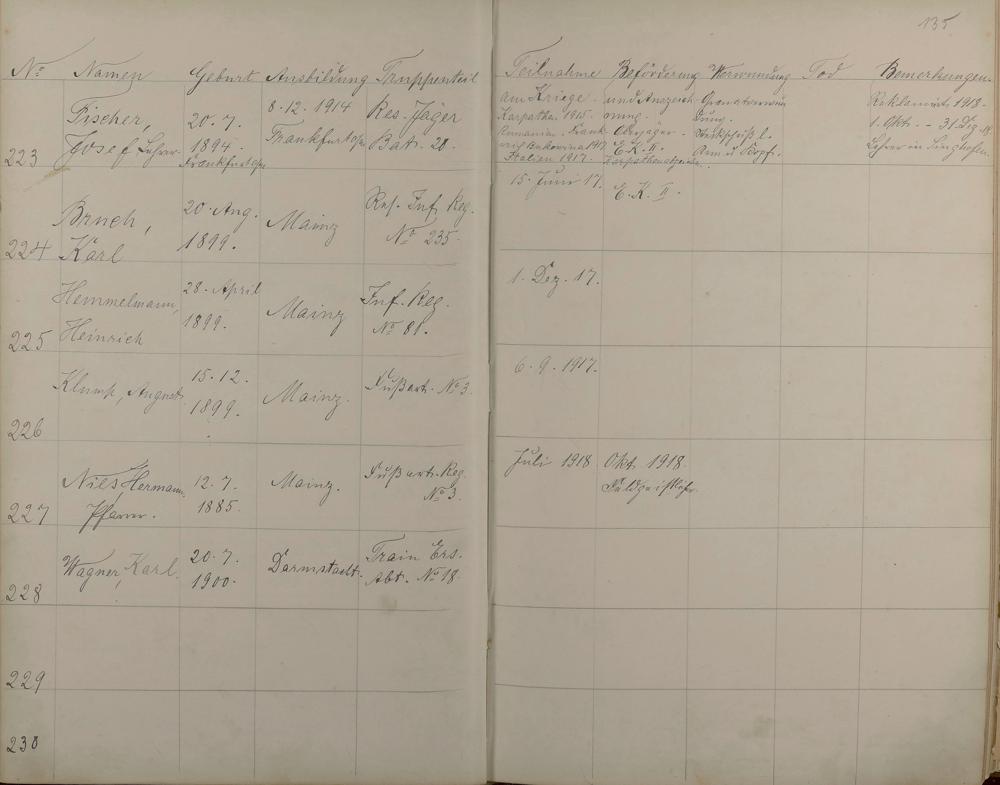 135
No Namen Geburt Ausbildung Truppenteil Teilnahme am Kriege Beförderung und Auszeichnung Verwundung Tod Bemerkungen.
223 Fischer, Josef Lehrer
20.7. 1894. Frankfurt
8.12.1914 Frankfurt
Res. Jäger Bat. 20.
Karpathen 1915.
Rumänien
Bukowina 1917
Italien 1917.
Oberjäger.
E.K. II.
Arm u. Kopf.
1918.
1. Okt. - 31. Dez.
Lehrer in
224 Bruch, Karl
20. Aug. 1899.
Mainz
Res. Inf. Reg. No 235.
15. Juni 17.
E.K. II.
225 Hemmelmann, Heinrich
28. April 1899.
Mainz
Inf. Reg. No 81.
1. Dez. 17.
226 Klump, August
15.12. 1899.
Mainz.
Fußart. No 3.
6.9.1917.
227 Nies, Hermann, Pfarrer.
12.7. 1885.
Mainz.
Fußart. Reg. No 3.
Juli 1918
Okt. 1918.
228 Wagner, Karl.
20.7. 1900.
Darmstadt.
Train Ers. Abt. No 18.
229
230